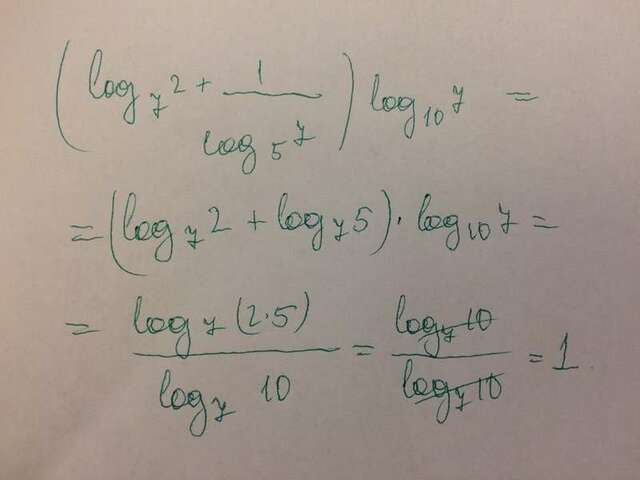 (log₇2 + 1/log₅7) log₁₀7 =
= (log₇2 + log₇5) · log₁₀7 =
= log₇(2·5)/log₇ 10 = log₇10/log₇10 = 1.